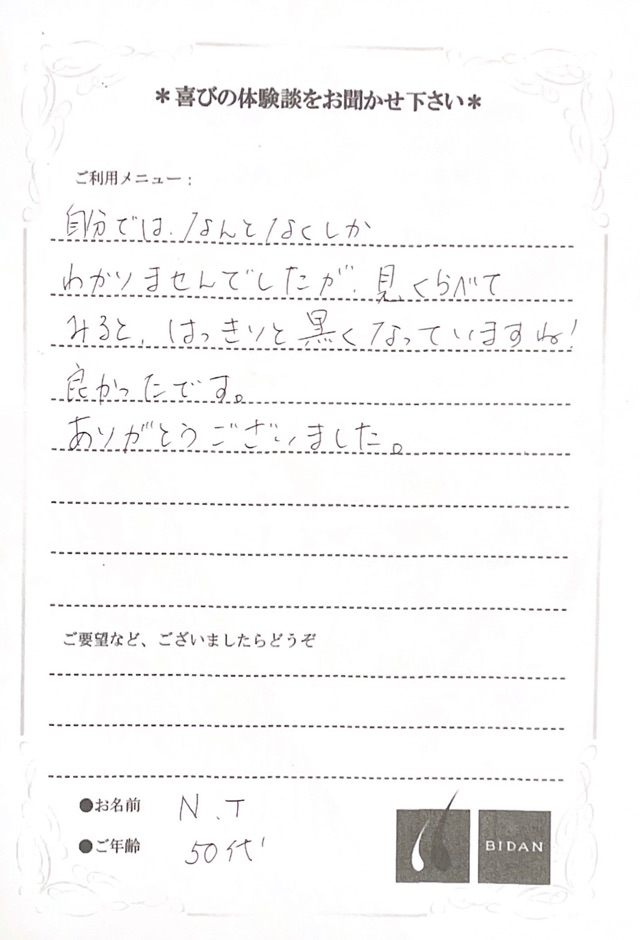 ＊喜びの体験談をお聞かせ下さい＊
ご利用メニュー：
自分では、なんとなくしか
わかりませんでしたが、見くらべて
みると、はっきりと黒くなっていますね!
良かったです。
ありがとうございました。
ご要望など、ございましたらどうぞ
●お名前 N.T
●ご年齢 50代
BIDAN